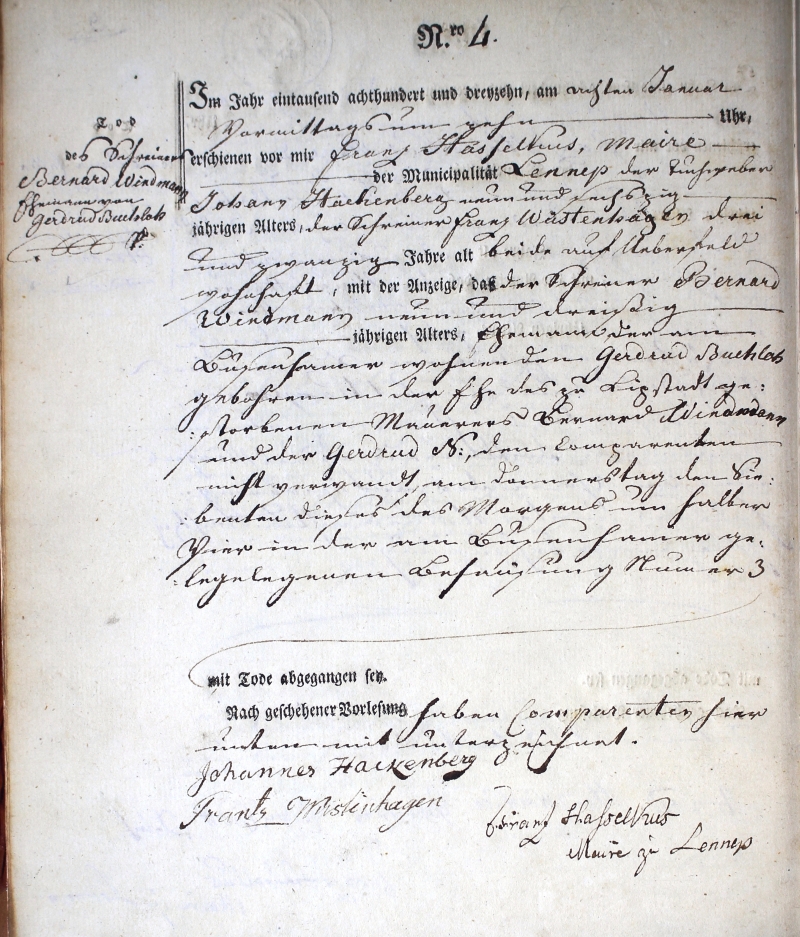 N.ro 4.
Tod
des Schreiners
Bernard Windmann
Ehemann von
Gerdrud Buchloh
Im Jahr eintausend achthundert und dreyzehn, am achten Januar
Vormittags um zehn Uhr,
erschienen vor mir Franz Hasselkus, Maire
der Municipalität Lennep der Tuchweber
Johann Hackenberg neun und sechszig
jährigen Alters, der Schreiner Franz Wüstenhagen drei
und zwanzig Jahre alt beide auf Ueberfeld
wohnhaft, mit der Anzeige, daß der Schreiner Bernard
Windmann neun und dreißig
jährigen Alters, Ehemann der am
wohnenden Gerdrud Buchloh
gebohren in der Ehe des zu Lipstadt ge:
:storbenen Mäuerers Bernard Windmann
und der Gerdrud N:, den Comparenten
nicht verwandt, am Donnerstag den Sie:
:benten dieses des Morgens um halber
Vier in der am ge:
:legelegenen Behausung Numer 3
mit Tode abgegangen sey.
Nach geschehener Vorlesung haben Comparenten hier
unten mit unterzeichnet.
Johannes Hackenberg
Frantz Wüstenhagen
Franz Hasselkus
Maire zu Lennep